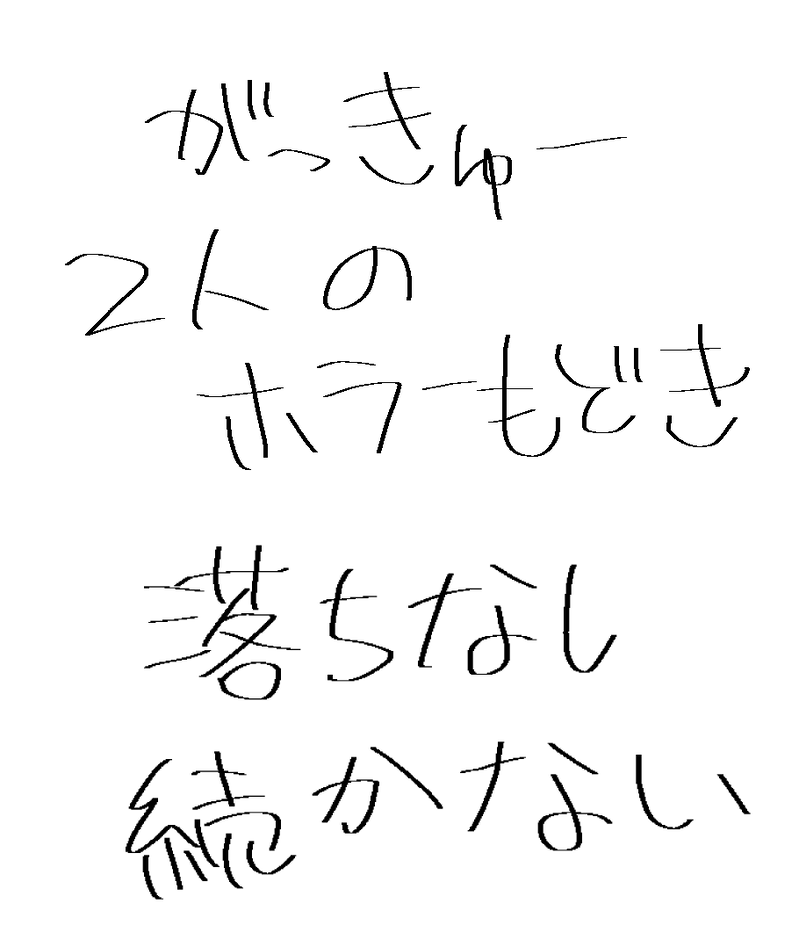 がっきゅー
2人の
ホラーもどき
落ちなし
続かない